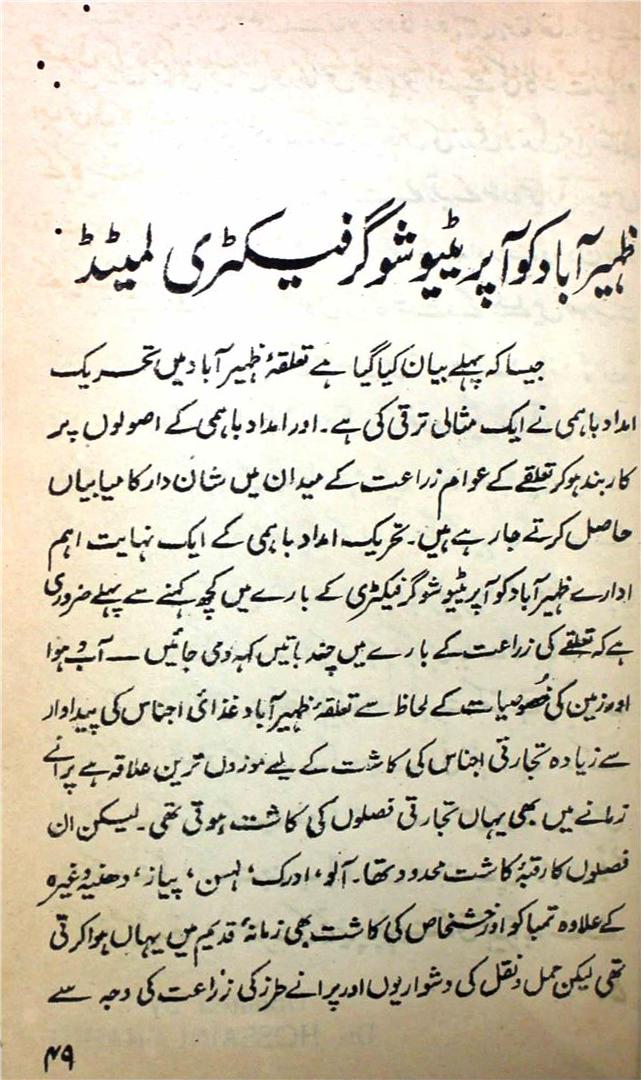 ظہیرآباد کوآپریٹیو شوگر فیکٹری لمیٹڈ
جیسا کہ پہلے بیان کیا گیا ہے تعلقۂ ظہیرآباد میں تحریک
امداد باہمی نے ایک مثالی ترقی کی ہے۔ اور امداد باہمی کے اصولوں پر
کاربند ہوکر تعلقے کے عوام زراعت کے میدان میں شان دار کامیابیاں
حاصل کرتے جارہے ہیں۔ تحریک امداد باہمی کے ایک نہایت اہم
ادارے ظہیرآباد کوآپریٹیو شوگر فیکٹری کے بارے میں کچھ کہنے سے پہلے ضروری
ہے کہ تعلقے کی زراعت کے بارے میں چند باتیں کہہ دی جائیں ـــ آب و ہوا
اور زمین کی خصوصیات کے لحاظ سے تعلقۂ ظہیرآباد غذائی اجناس کی پیداوار
سے زیادہ تجارتی اجناس کی کاشت کے لیے موزوں ترین علاقہ ہے پرانے
زمانے میں بھی یہاں تجارتی فصلوں کی کاشت ہوتی تھی۔ لیکن ان
فصلوں کا رقبۂ کاشت محدود تھا۔ آلو، ادرک، لہسن، پیاز، دھنیہ وغیرہ
کے علاوہ تمباکو اور خشخاص کی کاشت بھی زمانۂ قدیم میں یہاں ہوا کرتی
تھی لیکن حمل و نقل کی دشواریوں اور پرانے طرز کی زراعت کی وجہ سے
۴۹